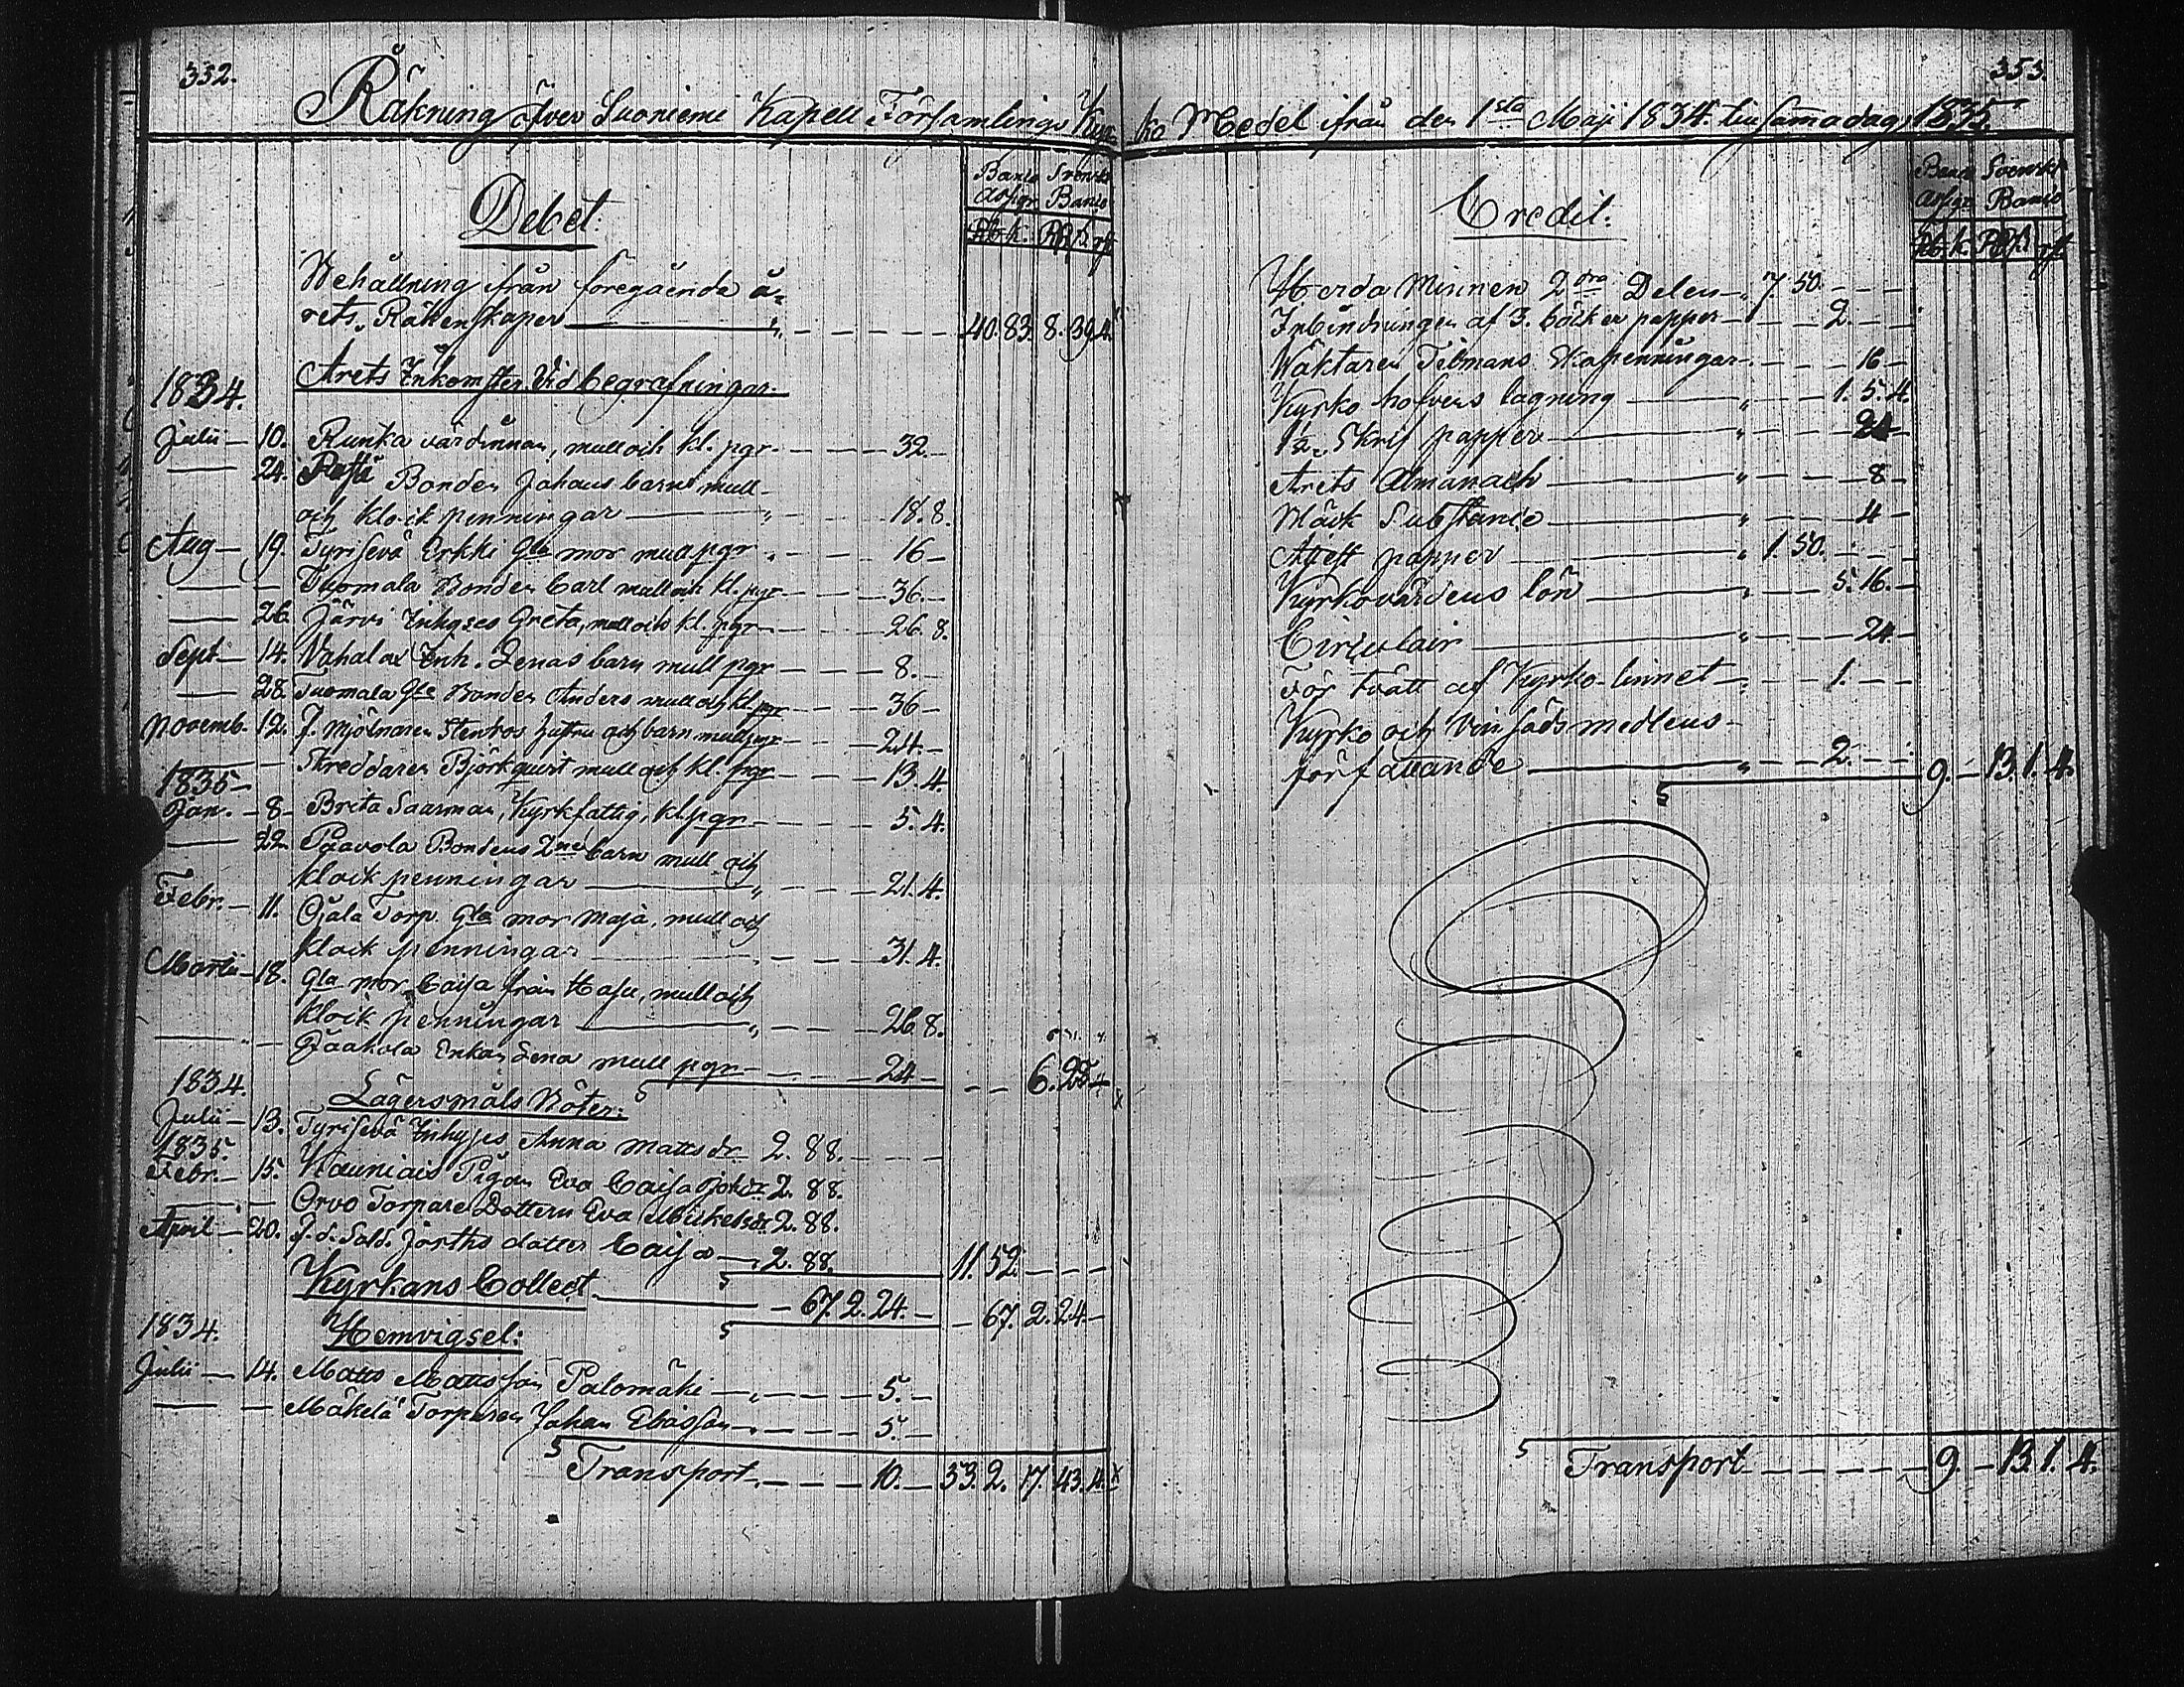 332.
Räkning öfver Suoniemi Kapell Församlings Kyr=
Debet.
Banco Svenskt
Assigr Banco
Rb. k. Rd. s. rst.
Behållning ifrån föregående å=
rets Räkenskaper — 40.83. 8. 39.4.
Årets Inkomster Vid begrafningar.
1834.
Julii — 10. Runka värdinnan, mull och kl. pgr — 32.—
— 24. Bonden Johans barns mull
och klock penningar — 18.8.
Aug — 19. Tyrisevä Erkki Gla mor mull pgr — 16 —
— Tuomala Bonden Carl mull och kl. pgr — 36.—
— 26. Järvi Inhyses Greta, mull och kl. pgr — 26.8.
Sept — 14. Vahala Inh. Lenas barn mull pgr — 8.—
— 28. Tuomala Gle Bonden Anders mull och kl. pgr — 36 —
Novemb. 12. f. Mjölnaren Stenros hustru och barn mull pgr — 24.—
— Skreddaren Björkquist mull och kl. pgr — 13.4.
1835 —
Jan. — 8 — Brita Saarman, Kyrkfattig, kl. pgr — 5.4.
— 22. Paavola Bondens 2ne barn mull och
klock penningar — 21.4.
Febr. — 11. Ojala Torp. Gla mor Maja, mull och
klock penningar — 31.4.
Martii — 18. Gla mor Caisa från Hasu, mull och
klock penningar — 26.8.
— Jaakola Enkan Lena mull pgr — 24 — 6.25.
1834. Lägersmåls Böter:
Julii — 13. Tyrisevä Inhyses Anna Mattsdr 2. 88. —
1835.
Febr. — 15. Kauniais Pigan Eva Caisa 2. 88.
— Orvo Torpare Dottern Eva Mickelsdr 2. 88.
April — 20. f. d. Sold. Jörths dotter Caisa — 2. 88. 11. 52. —
Kyrkans Collect — 67. 2. 24. — 67. 2. 24. —
1834. Hemvigsel:
Julii — 14. Matts Mattsson Palomäki — 5. —
— Mäkelä Torparen Johan Eliasson — 5. —
Transport — 10. — 53. 2. 17. 43. 4.
353.
ko Medel ifrån den 1sta Maji 1834. till samma dag 1835.
Credit:
Banco Svenskt
Assigr Banco
Rb. k. Rd. s. rst.
Herda Minnen 2dra Delen — 7. 50. —
Inbindningen af 3. böcker papper — 2. —
Wäktaren Tidmans Skopenningar — 16 —
Kyrko hofvens lagning — 1. 5. 4.
Skrif papper — 24 —
Årets Almanach — 8 —
Bläck Substance — 4 —
Attest papper — 1. 50. —
Kyrkovärdens lön — 5. 16. —
Circulair — 24 —
För tvätt af Kyrko-linnet — 1. —
Kyrko och Vinsäds medlens
författande — 2. — 9. — 13. 1. 4.
Transport — 9. — 13. 1. 4.